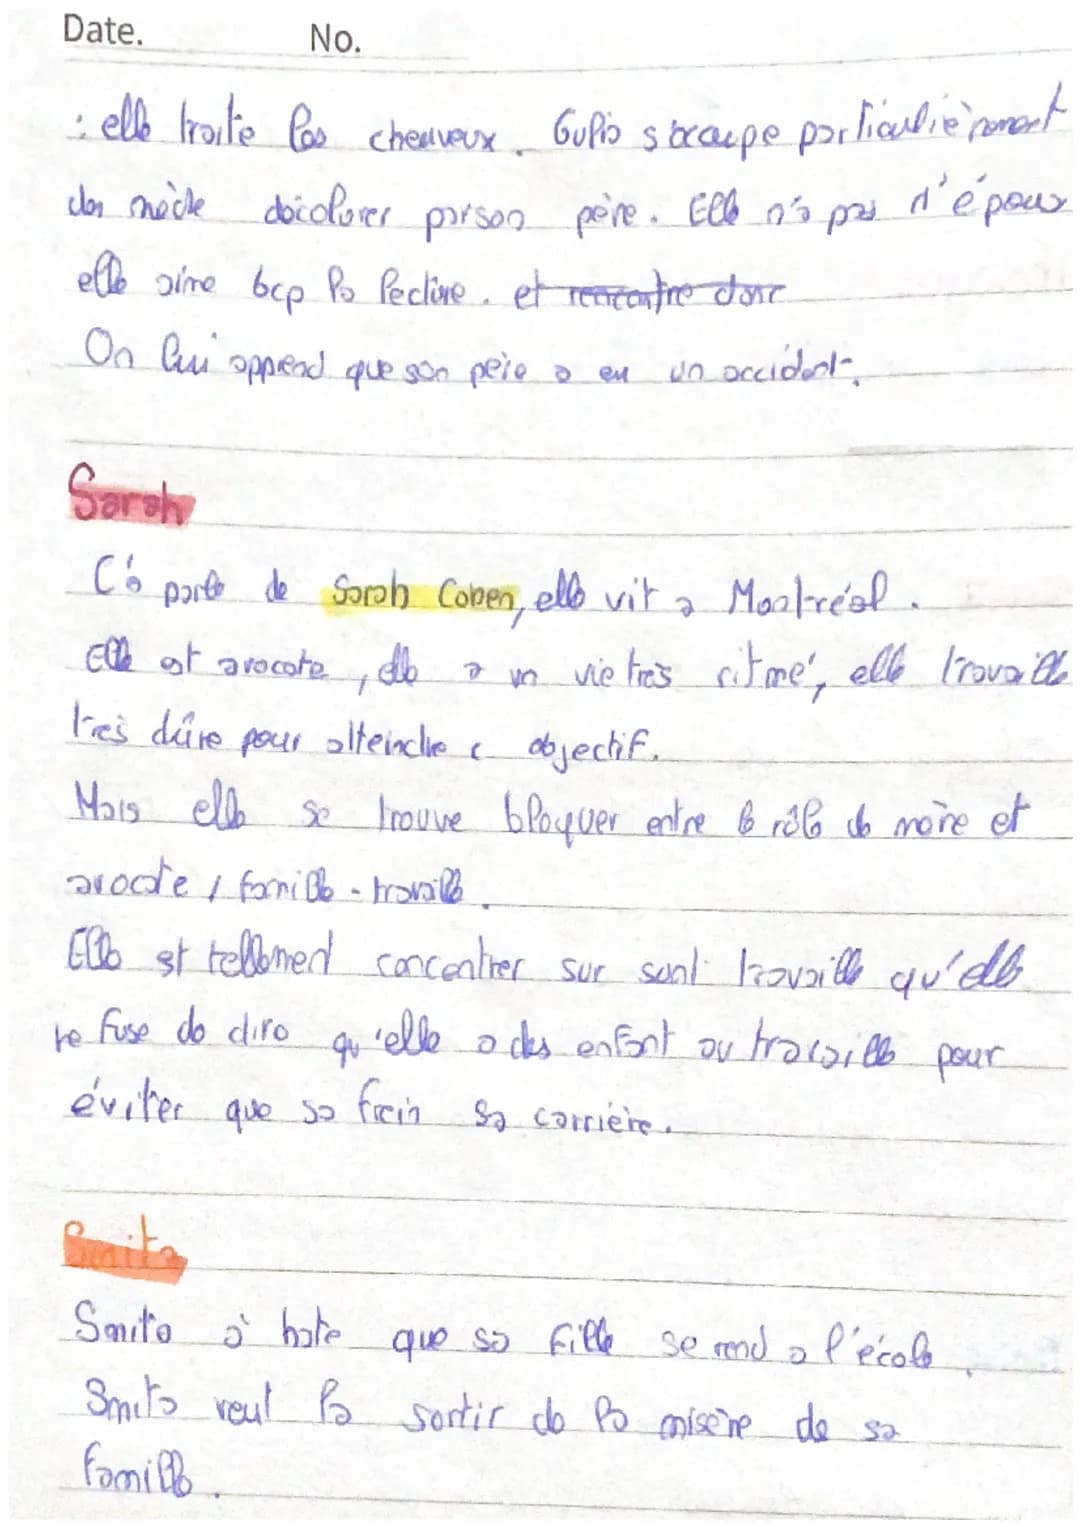 Date. No.
: elle traite les cheuveux. Gulia s'occupe particulièrement
des mèche décolorer par son père. Elle n'a pas d'époux
elle aime bcp la lecture. et rencontre donc
On lui apprend que son père a eu un accident.
Sarah
C'a parle de Sarah Cohen, elle vit a Montréal.
Elle est avocate, elle a un vie très ritmé, elle travaille
très dûre pour atteindre c objectif.
Mais elle se trouve bloquer entre le rôle de mère et
avocate / famille - travaille.
Elle est tellement concentrer sur sont travaille qu'elle
refuse de dire qu'elle a des enfant au travaille pour
éviter que sa frein sa carrière.
Smita
Smita à hate que sa fille se rend a l'école.
Smita veut la sortir de la misère de sa
famille.